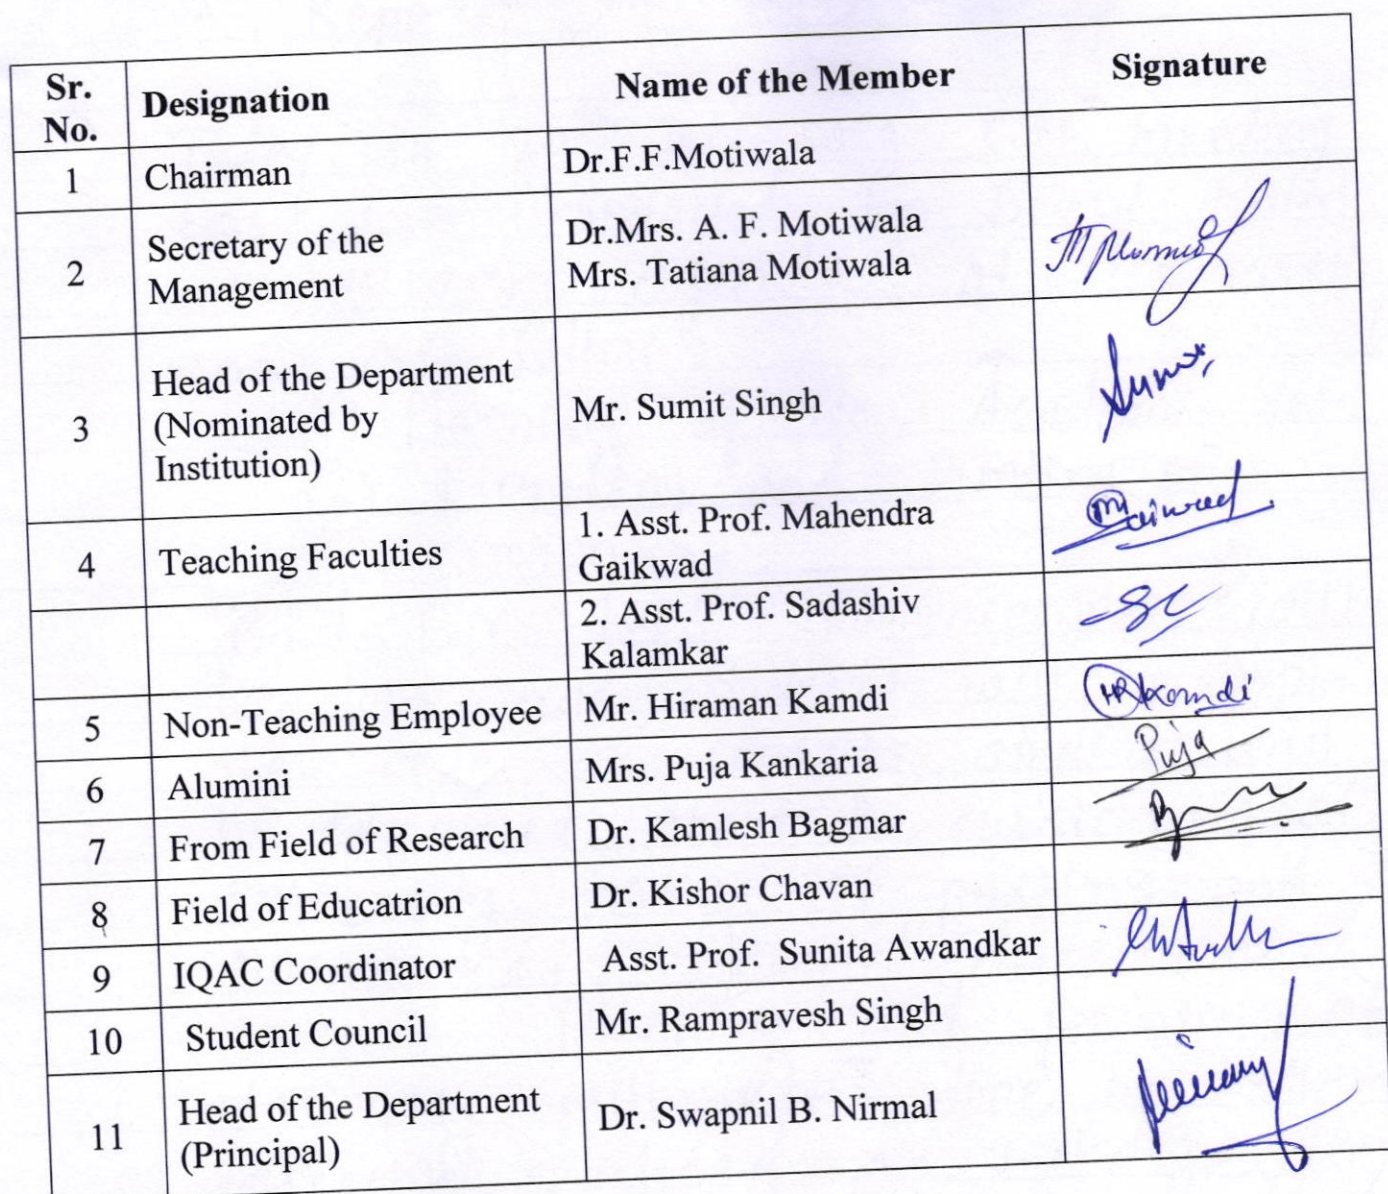 Sr. No. Designation Name of the Member Signature
1 Chairman Dr.F.F.Motiwala
2 Secretary of the Management Dr.Mrs. A. F. Motiwala
Mrs. Tatiana Motiwala
3 Head of the Department
(Nominated by
Institution) Mr. Sumit Singh Sumit
4 Teaching Faculties 1. Asst. Prof. Mahendra
Gaikwad
2. Asst. Prof. Sadashiv
Kalamkar
5 Non-Teaching Employee Mr. Hiraman Kamdi HRkamdi
6 Alumini Mrs. Puja Kankaria Puja
7 From Field of Research Dr. Kamlesh Bagmar
8 Field of Educatrion Dr. Kishor Chavan
9 IQAC Coordinator Asst. Prof. Sunita Awandkar
10 Student Council Mr. Rampravesh Singh
11 Head of the Department
(Principal) Dr. Swapnil B. Nirmal